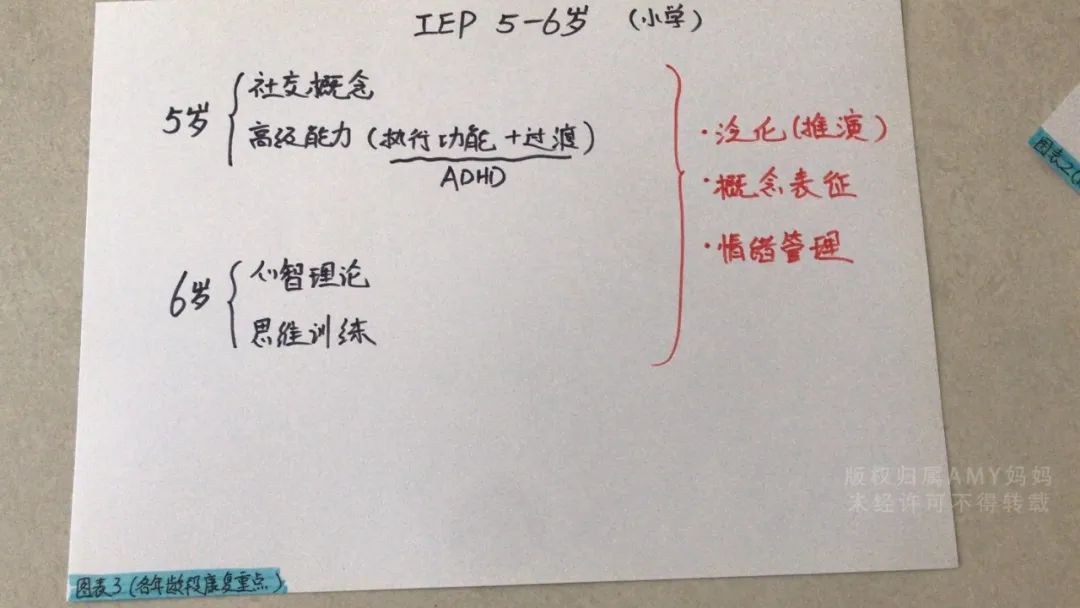 IEP 5-6岁 (小学)
5岁
社交概念
高级能力 (执行功能+过渡)
ADHD
6岁
心智理论
思维训练
·泛化(推演)
·概念表征
·情绪管理
图表2(
版权归属AMY妈妈
未经许可不得转载
图表3(各年龄段康复重点)